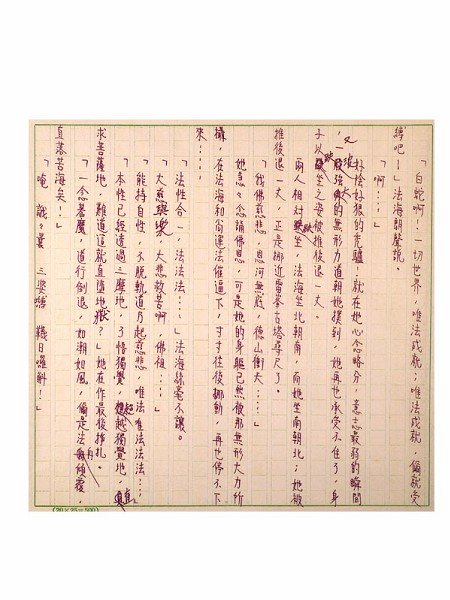 「白蛇啊！一切世界，唯法成就；唯法成就，偏就受
縛吧！」法海朗聲說。
「啊：：：」
好怪好狠的禿驢！就在她心念略分，意志最弱的瞬間
，又一波強大的無形力道朝她撲到，她再也承受不住了，身
子以跌坐之姿被推後退一丈。
兩人相對跌坐，法海坐北朝南，而她坐南朝北；她被
推後退一丈，正是挪近雷峯古塔尋尺了。
「我佛慈悲，恩河無底，德山衝天：：：」
她急急念誦佛恩，可是她的身軀已然被那無形大力所
攝，在法海和尚運法催逼下，寸寸往後挪動，再也停不下
來：：：
「法性合一，法法法：：：」法海絲毫不讓。
「大慈與樂，大悲救苦啊！佛祖：：：」
「能持自性，不脫軌道乃起慈悲，唯法唯法法法：：：」
「本性已經透過三摩地，了悟獨覺，超越獨覺地，直
求菩薩地，難道這就直墮地獄？」她在作最後掙扎。
「一念着魔，道行倒退，如潮如風，偏是法再傾覆，
直落苦海矣！」
「唵 誐々曩 三婆嚩 韈日囉斛！」
(20×25=500)